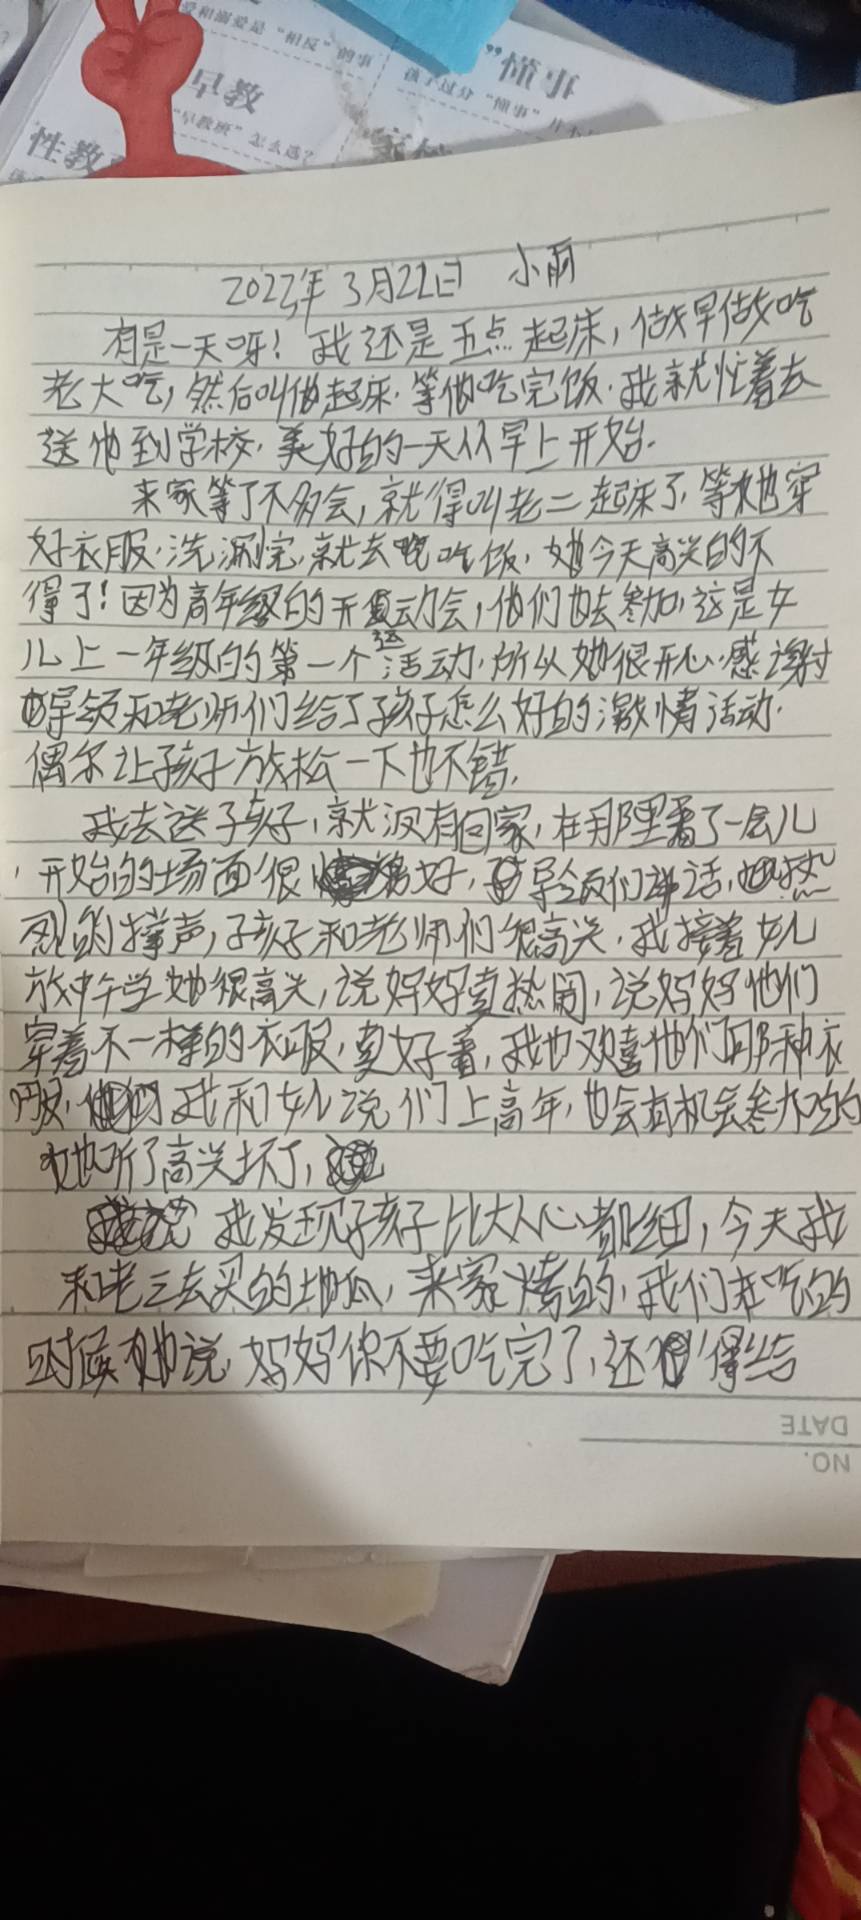 爱和溺爱是“相反”的事
早教
“早教班”怎么选？
性教
”懂事
孩子过分“懂事”并不
2023年3月22日 小雨
有是一天呀！我还是五点起床，做早做吃
老大吃，然后叫他起床.等他吃完饭.我就忙着去
送他到学校.美好的一天从早上开始.
来家等了不多会，就得叫老二起床了.等她穿
好衣服.洗涮完.就去吃饭，她今天高兴的不
得了！因为高年级的开运动会，他们也去参加，这是女
儿上一年级的第一个运活动.所以她很开心.感谢
导领和老师们给了孩子怎么好的激情活动.
偶尔让孩子放松一下也不错.
我去送子孩子，就没有回家，在那里看了一会儿
，开始的场面很好，导领们讲话，热
烈的掌声，孩子和老师们很高兴.我接着女儿
放中午学她很高兴，说妈妈真热闹，说妈妈他们
穿着不一样的衣服，真好看，我也欢喜他们那种衣
服.我和女儿说们上高年，也会有机会参加的
她听了高兴坏了，
我发现孩子比大人心都细，今天我
和老三去买的地瓜，来家烤的，我们在吃的
时候她说，妈妈你不要吃完了，还得给
DATE
NO.